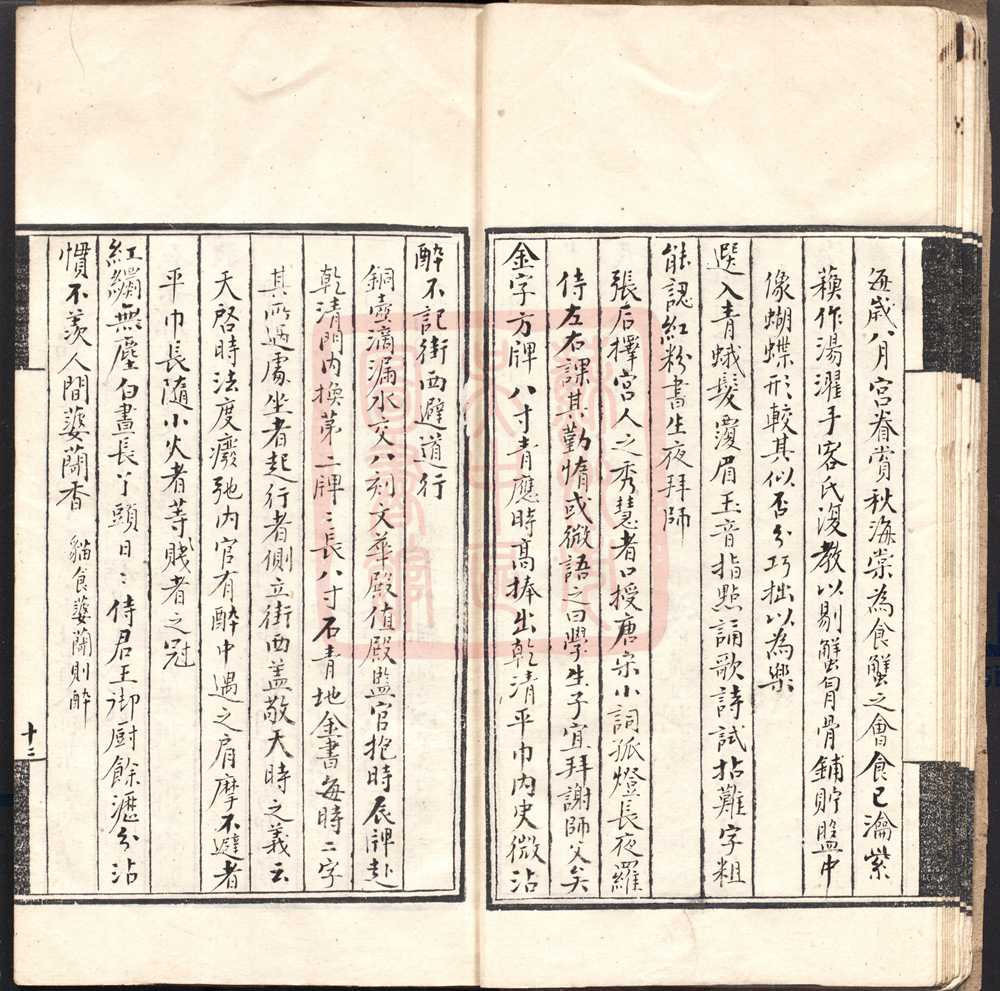 每歲八月宮眷賞秋海棠為食蟹之會食已瀹紫
蘓作湯濯手客氏復教以剔蟹胷骨鋪貯盤中
像蝴蝶形較其似否分巧拙以為樂
選入青蛾髮覆眉玉音指點誦歌詩試拈難字粗
能認紅粉書生夜拜師
張后擇宮人之秀慧者口授唐宋小詞孤燈長夜羅
侍左右課其勤惰或微語之曰學生子宜拜謝師父矣
金字方牌八寸青應時高捧出乾清平巾內史微沾
醉不記街西避道行
銅壺滴漏水交八刻文華殿值殿監官抱時辰牌赴
乾清門內換第二牌〻長八寸石青地金書每時二字
其所過處坐者起行者側立街西盖敬天時之義云
天啓時法度廢弛內官有醉中遇之肩摩不避者
平巾長隨小火者等賤者之冠
紅𦆑無塵白晝長丫頭日〻侍君王御厨餘瀝分沾
慣不羨人間薆蘭香 貓食薆蘭則醉
十二